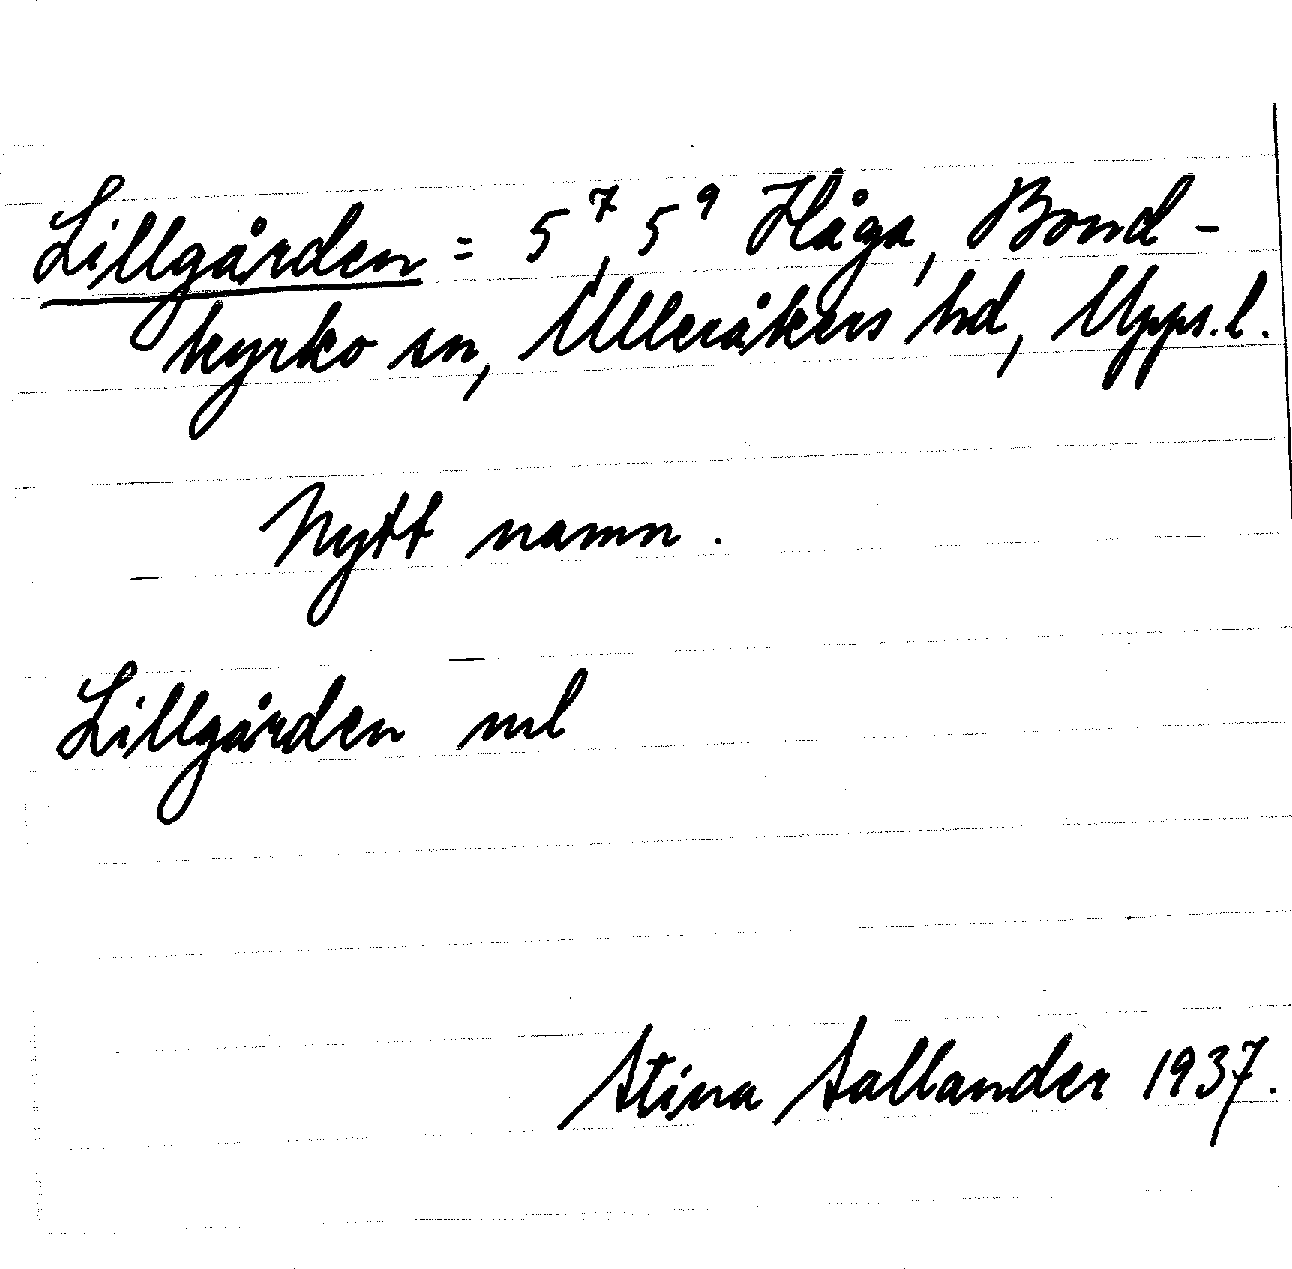 Lillgården = 5⁷, 5⁹ Håga, Bond-
kyrko sn, Ulleråkers hd, Upps. l.
Nytt namn.
Lillgården ml
Stina Sallander 1937.